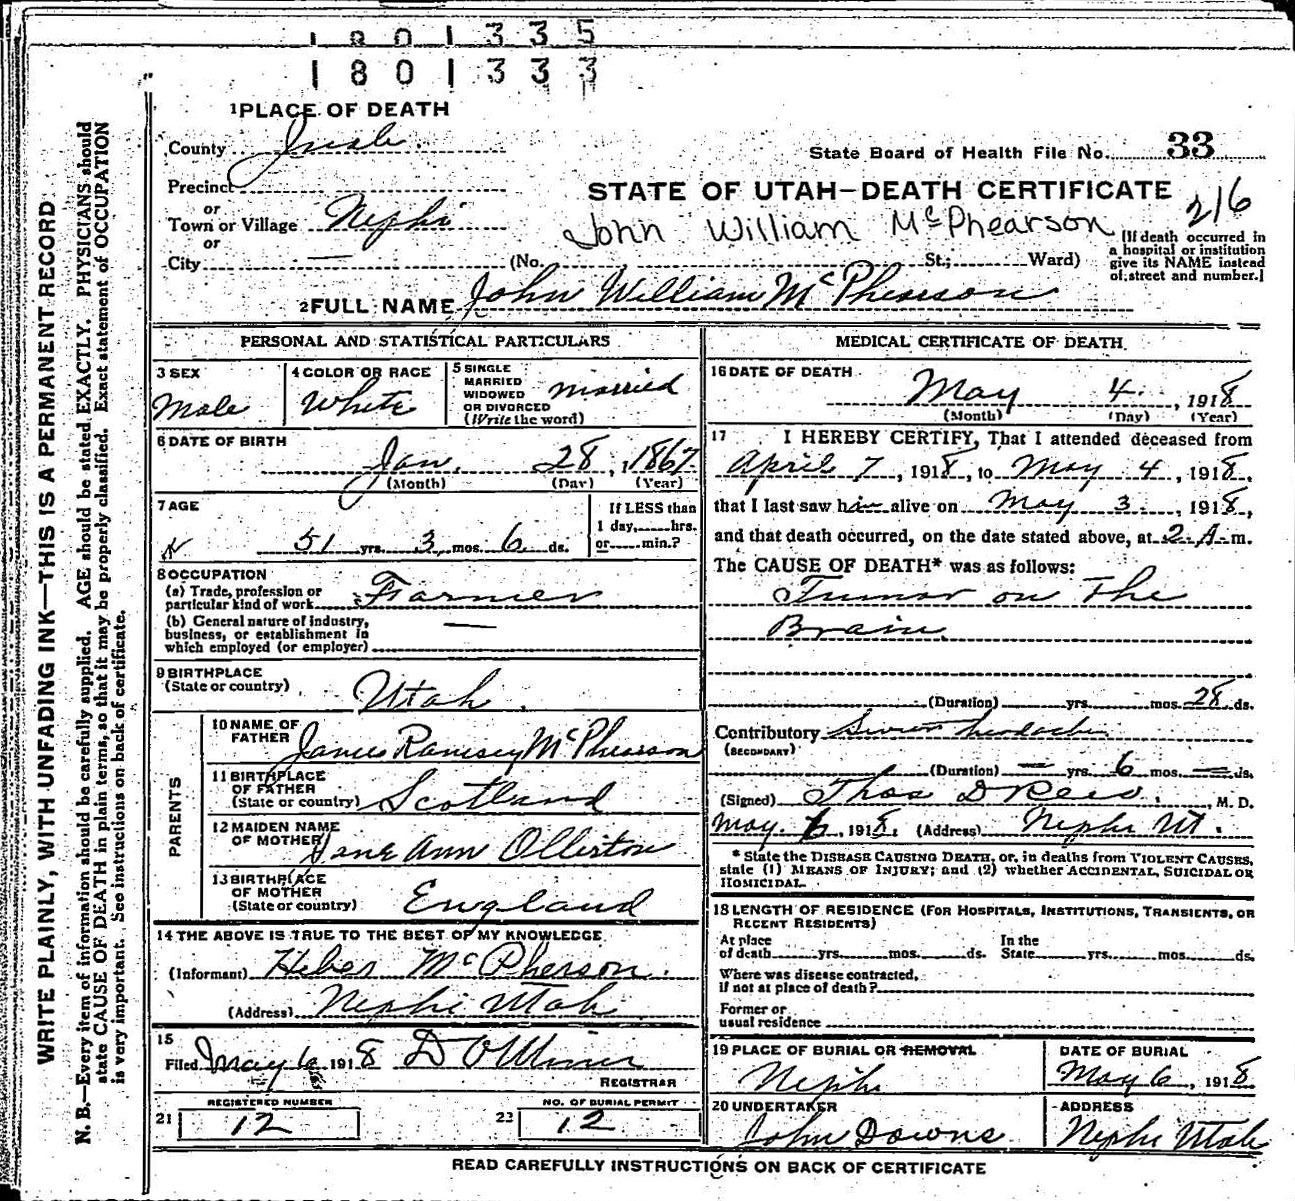 1 8 0 1 3 3 5
1 8 0 1 3 3 3
1 PLACE OF DEATH
County Juab
State Board of Health File No. 33
Precinct
or
Town or Village Nephi
or
City —
STATE OF UTAH—DEATH CERTIFICATE
216
John William McPhearson
(No. St.; Ward)
[If death occurred in
a hospital or institution
give its NAME instead
of street and number.]
2 FULL NAME John William McPhearson
PERSONAL AND STATISTICAL PARTICULARS
3 SEX
Male
4 COLOR OR RACE
White
5 SINGLE
MARRIED
WIDOWED
OR DIVORCED
(Write the word)
married
6 DATE OF BIRTH
Jan. 28, 1867
(Month) (Day) (Year)
7 AGE
51 yrs. 3 mos. 6 ds.
If LESS than
1 day, hrs.
or min.?
8 OCCUPATION
(a) Trade, profession or
particular kind of work Farmer
(b) General nature of industry,
business, or establishment in
which employed (or employer) —
9 BIRTHPLACE
(State or country) Utah.
PARENTS
10 NAME OF
FATHER James Ramsey McPhearson
11 BIRTHPLACE
OF FATHER
(State or country) Scotland
12 MAIDEN NAME
OF MOTHER Jane Ann Ollerton
13 BIRTHPLACE
OF MOTHER
(State or country) England
14 THE ABOVE IS TRUE TO THE BEST OF MY KNOWLEDGE
(Informant) Heber McPherson.
(Address) Nephi Utah
15
Filed May 6 1918
REGISTRAR
REGISTERED NUMBER
21 12
NO. OF BURIAL PERMIT
22 12
MEDICAL CERTIFICATE OF DEATH
16 DATE OF DEATH
May 4. , 1918
(Month) (Day) (Year)
17 I HEREBY CERTIFY, That I attended deceased from
April 7, 1918, to May 4, 1918,
that I last saw him alive on May 3, 1918,
and that death occurred, on the date stated above, at 2 A. m.
The CAUSE OF DEATH* was as follows:
Tumor on The
Brain.
(Duration) yrs. mos. 28 ds.
Contributory Severe headache
(SECONDARY)
(Duration) — yrs. 6 mos. — ds.
(Signed) Thos D Rees., M. D.
May. 6, 1918. (Address) Nephi Ut.
* State the DISEASE CAUSING DEATH, or, in deaths from VIOLENT CAUSES,
state (1) MEANS OF INJURY; and (2) whether ACCIDENTAL, SUICIDAL OR
HOMICIDAL.
18 LENGTH OF RESIDENCE (FOR HOSPITALS, INSTITUTIONS, TRANSIENTS, OR
RECENT RESIDENTS)
At place
of death yrs. mos. ds.
In the
State yrs. mos. ds.
Where was disease contracted,
if not at place of death?
Former or
usual residence
19 PLACE OF BURIAL OR REMOVAL
Nephi
DATE OF BURIAL
May 6, 1918
20 UNDERTAKER
John Downs
ADDRESS
Nephi Utah
READ CAREFULLY INSTRUCTIONS ON BACK OF CERTIFICATE
WRITE PLAINLY, WITH UNFADING INK—THIS IS A PERMANENT RECORD
N. B.—Every item of information should be carefully supplied. AGE should be stated EXACTLY. PHYSICIANS should
state CAUSE OF DEATH in plain terms, so that it may be properly classified. Exact statement of OCCUPATION
is very important. See instructions on back of certificate.